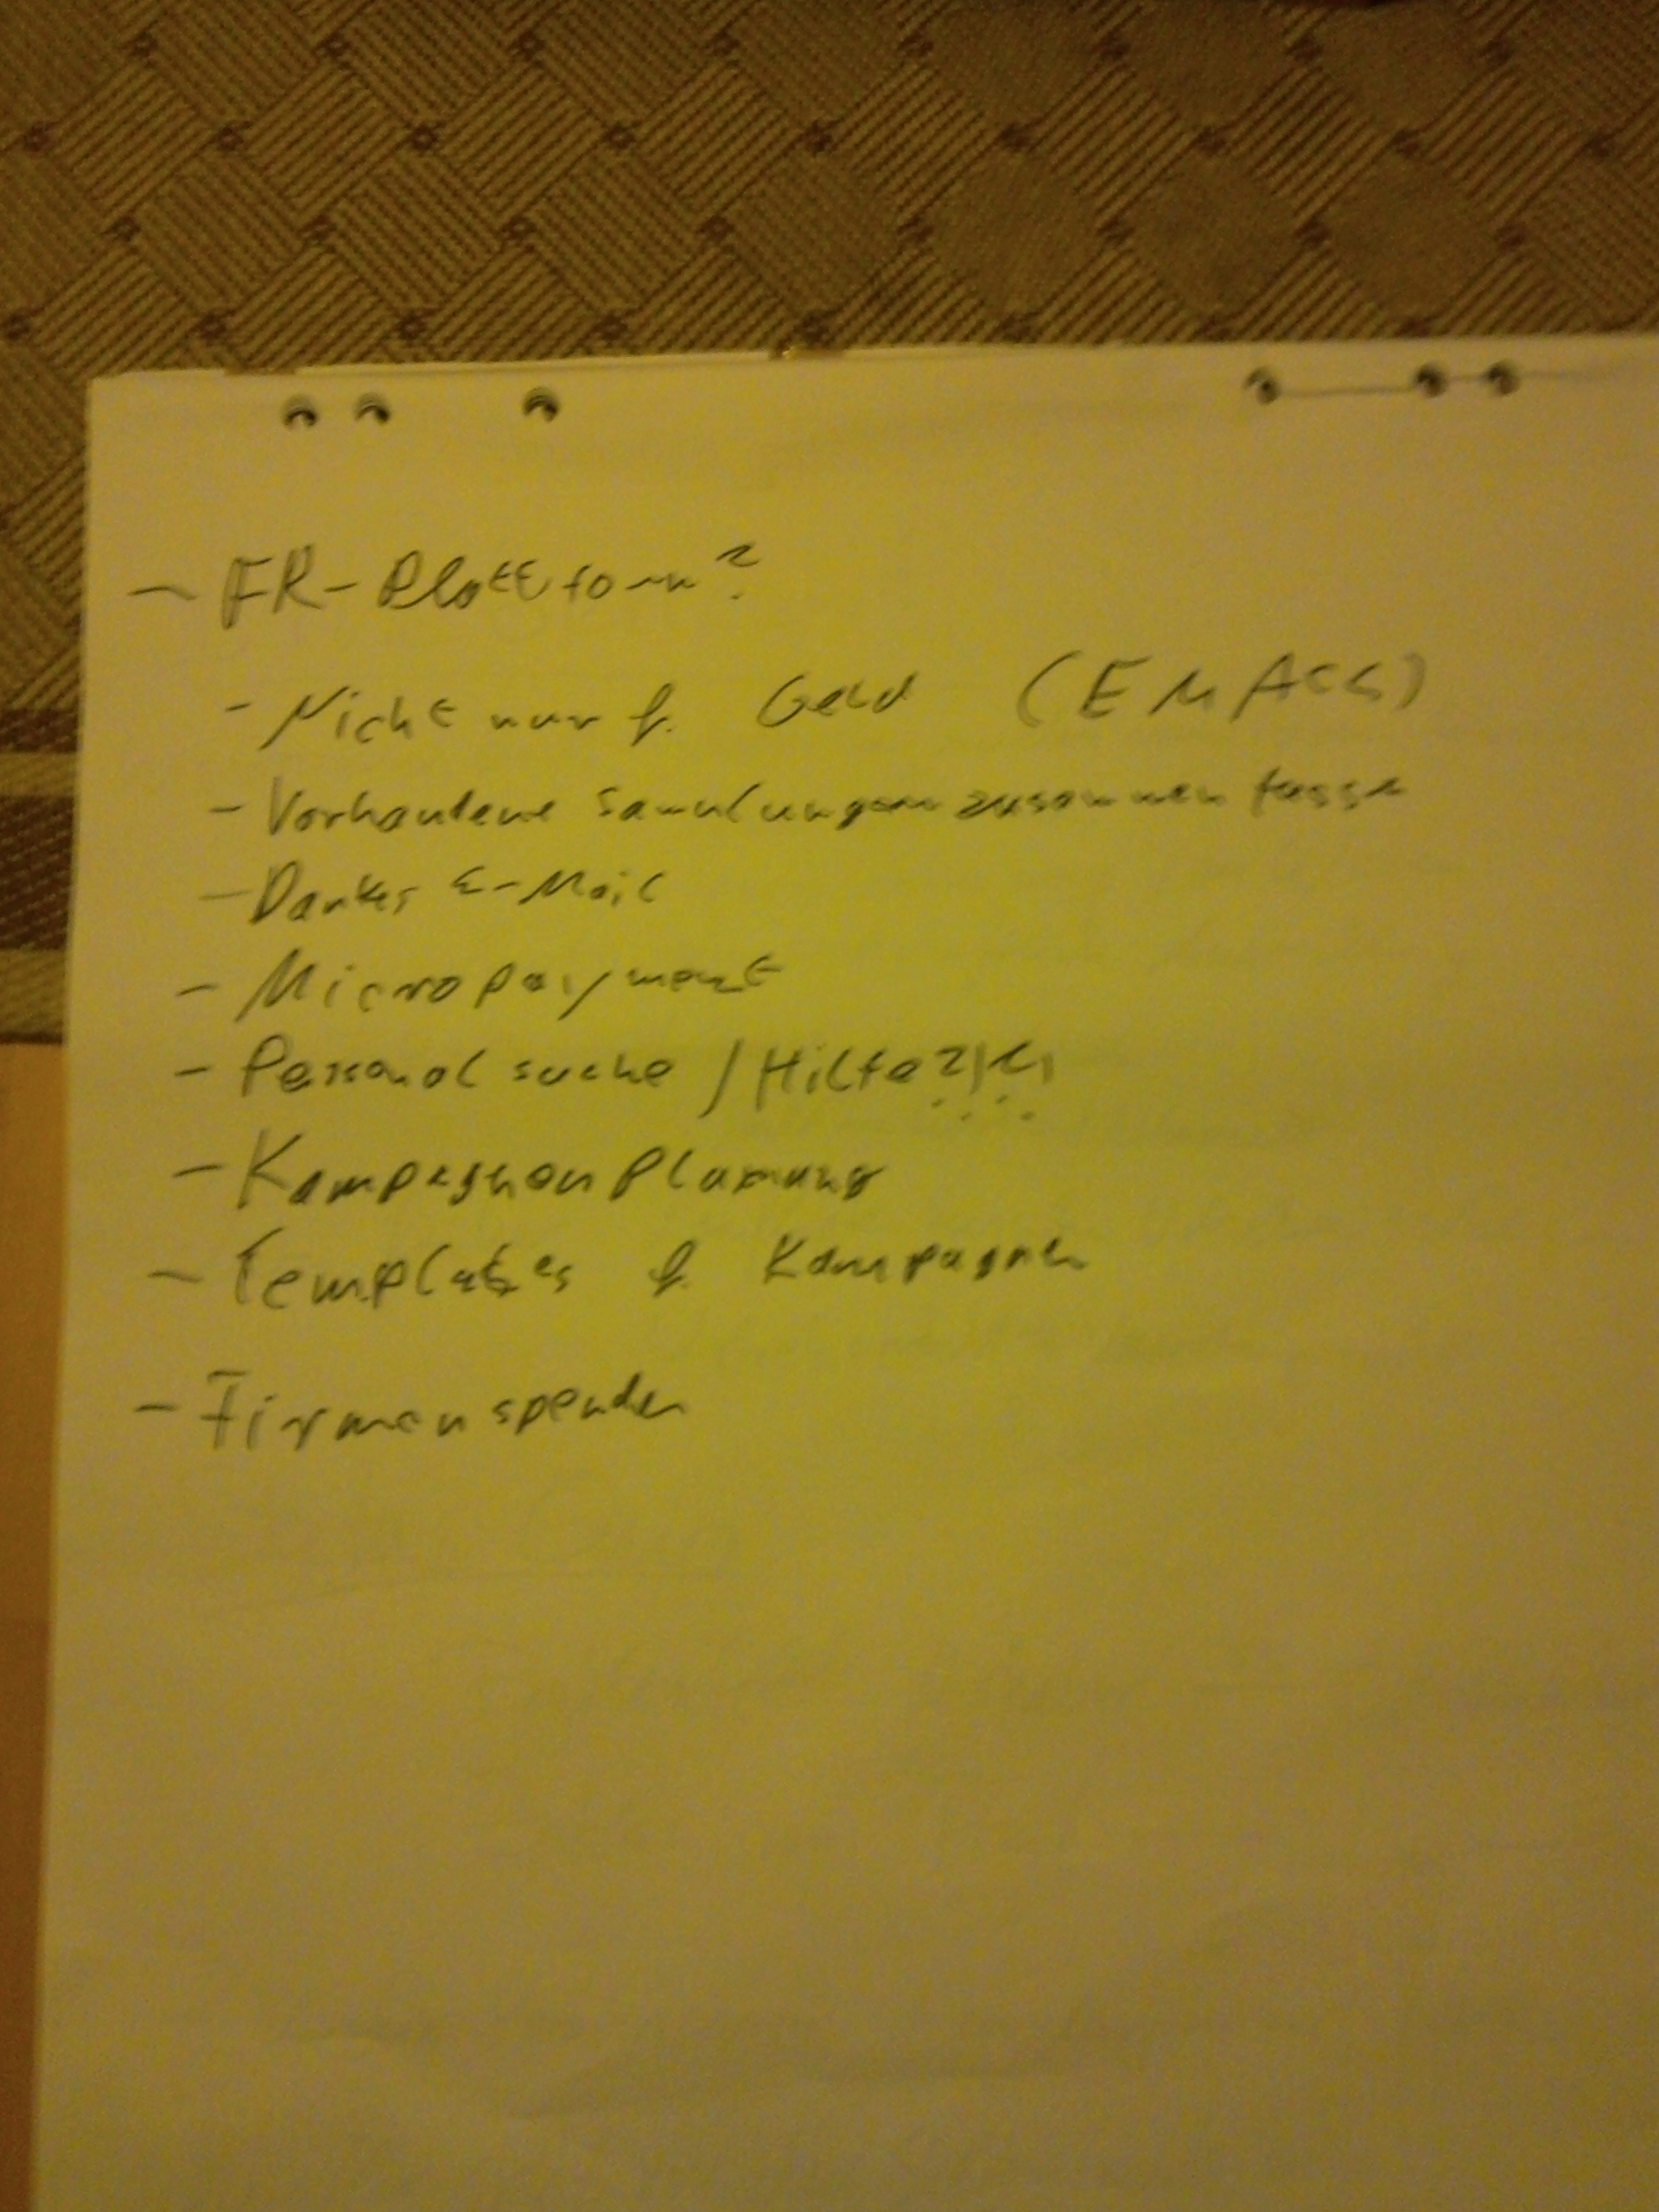 - FR-Plattform?
- Nicht nur f. Geld (EMACS)
- Vorhandene Sammlungen zusammenfassen
- Dankes E-Mail
- Micropayment
- Personalsuche / Hilfe
- Kampagnenplanung
- Templates f. Kampagnen
- Firmenspenden